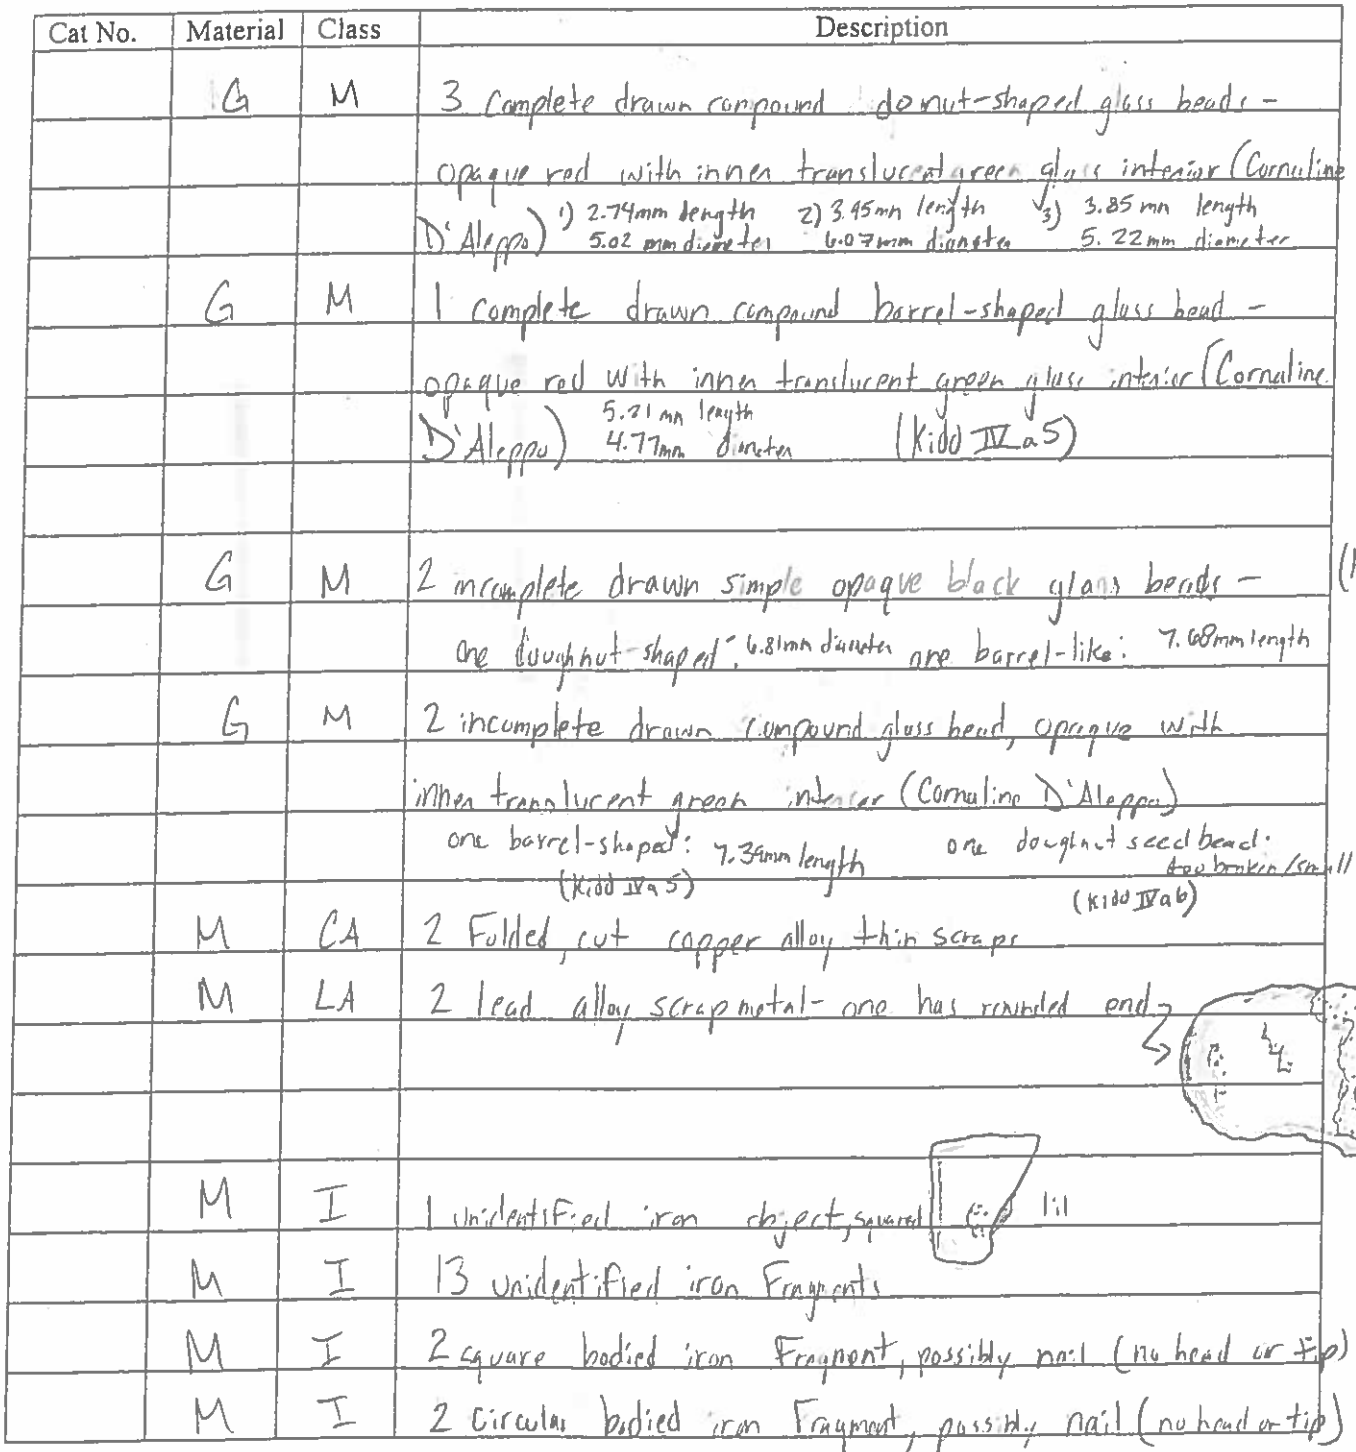 Cat No. Material Class Description
G M 3 Complete drawn compound donut-shaped glass beads -
opaque red with inner translucent green glass interior (Cornaline
D'Aleppo) 1) 2.74mm length 2) 3.95mm length 3) 3.85 mm length
5.02 mm diameter 6.07mm diameter 5.22mm diameter
G M 1 complete drawn compound barrel-shaped glass bead -
opaque red with inner translucent green glass interior (Cornaline
D'Aleppo) 5.21 mm length
4.77mm diameter (Kidd IVa5)
G M 2 incomplete drawn simple opaque black glass beads - (
one doughnut-shaped: 6.81mm diameter one barrel-like: 7.68mm length
G M 2 incomplete drawn compound glass bead, opaque with
inner translucent green interior (Cornaline D'Aleppo)
one barrel-shaped: 7.39mm length one doughnut seed bead:
too broken/small
(Kidd IVa5) (Kidd IVa6)
M CA 2 Folded, cut copper alloy thin scraps
M LA 2 lead alloy scrap metal - one has rounded end
M I 1 unidentified iron object, squared
M I 13 unidentified iron Fragments
M I 2 square bodied iron Fragment, possibly nail (no head or tip)
M I 2 Circular bodied iron Fragment, possibly nail (no head or tip)